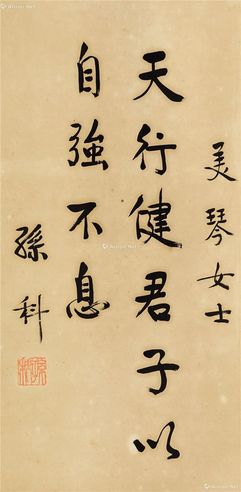 美琴女士
天行健君子以
自強不息
孫科